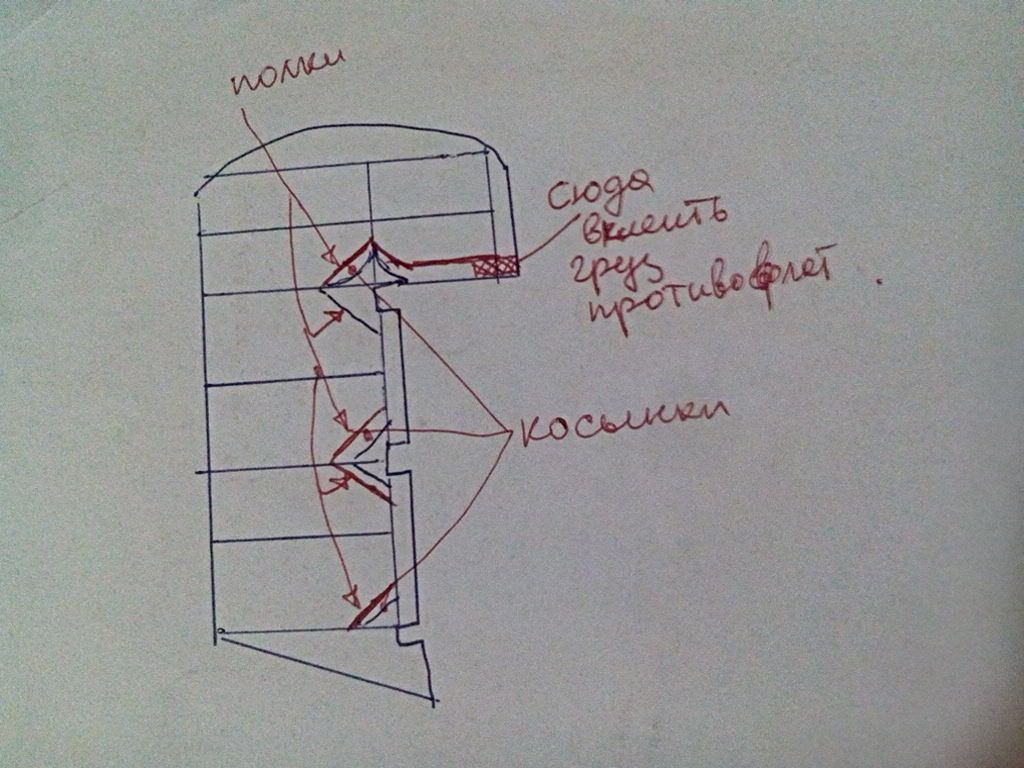 полки
сюда
вклеить
груз
противофлат
косынки